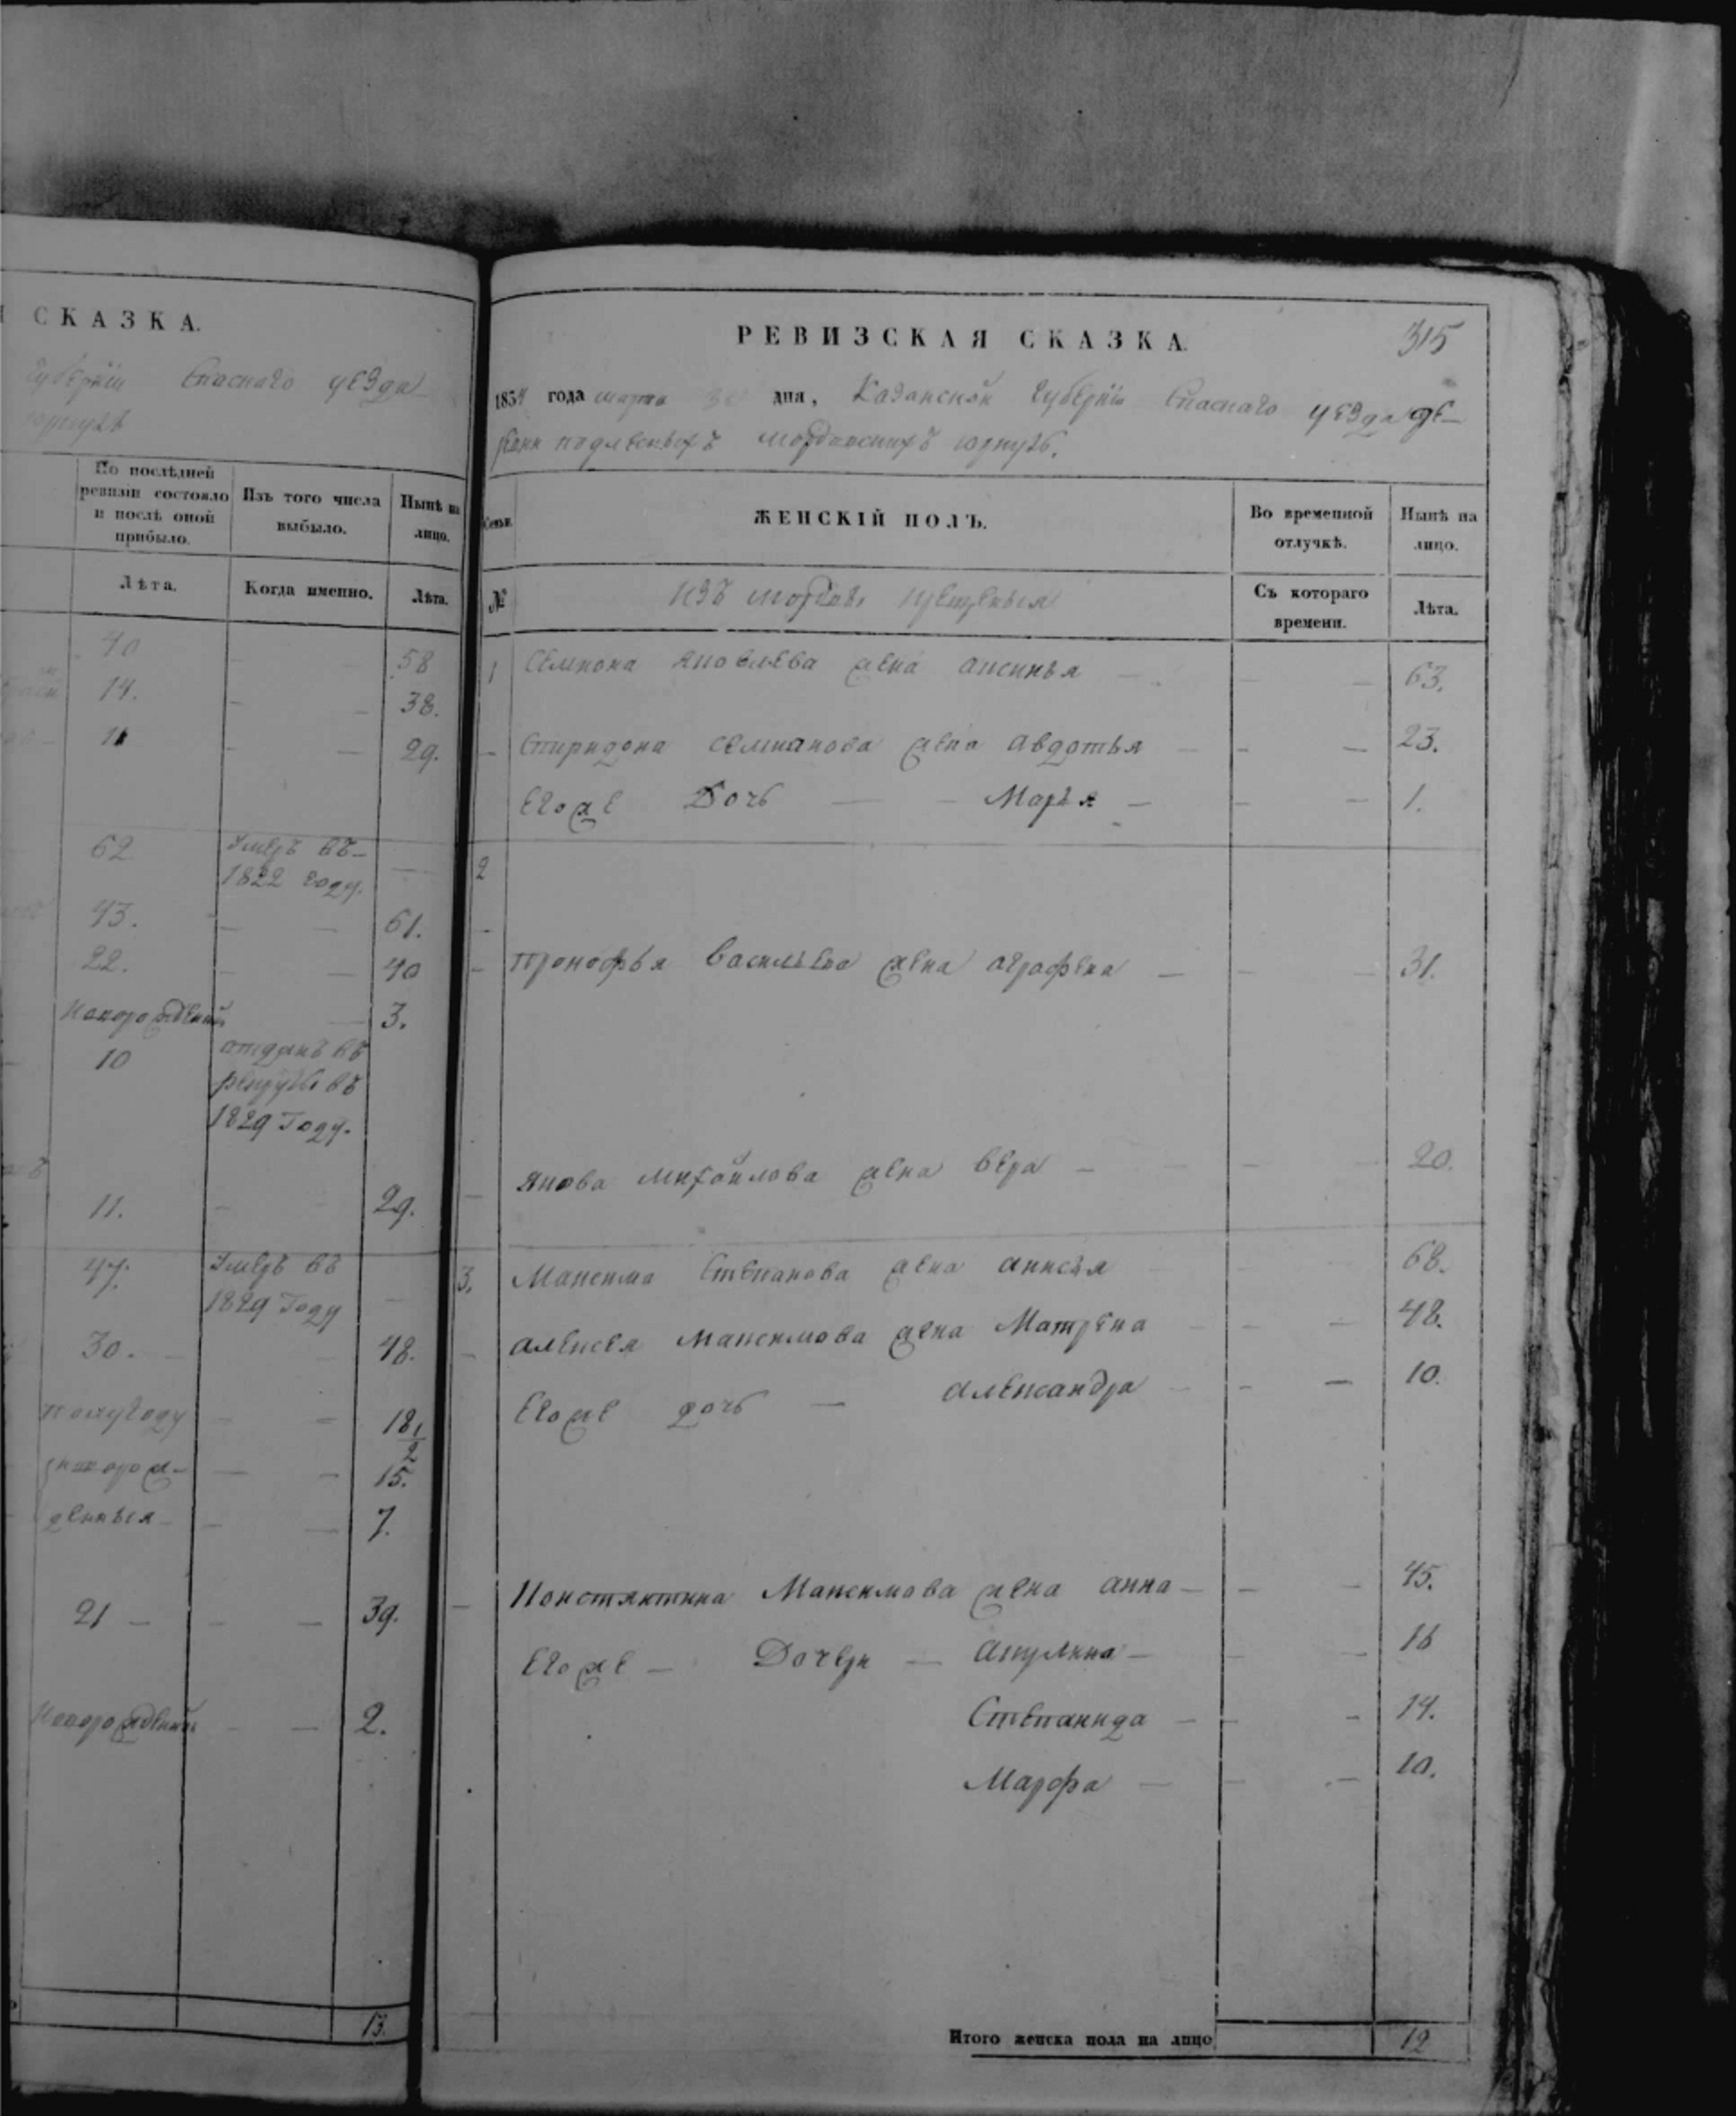 СКАЗКА.
губернiи Спаскаго уезда
По послѣдней ревизiи состояло и послѣ оной прибыло.
Изъ того числа выбыло.
Нынѣ на лицо.
Лѣта.
Когда именно.
Лѣта.
40 — — 58
14. — — 38.
11 — — 29.
62 Умеръ въ 1822 году. —
43. — — 61.
22. — — 40
Новорожденный — 3.
10 отданъ въ рекруты въ 1829 Году.
11. — — 29.
47. Умеръ въ 1829 Году —
30. — — 48.
полугоду — — 18 1/2
— — 15.
денныя — — 7.
21 — — — 39.
Новорожденный — — 2.
13.
РЕВИЗСКАЯ СКАЗКА.
315
1834 года марта дня, Казанской Губернiи Спаскаго уезда де-
ревни подлесныхъ мордовскихъ
Семьи.
ЖЕНСКIЙ ПОЛЪ.
Во временной отлучкѣ.
Нынѣ на лицо.
№
изъ мордвы крещеныя
Съ котораго времени.
Лѣта.
1 Семиона яковлева жена аксинья — — — 63.
— Спиридона семианова жена авдотья — — — 23.
Егоже Дочь — — Марья — — — 1.
2
—
— прокофья васильева жена аграфена — — — 31.
— якова михайлова жена вера — — — 20.
3. Максима степанова жена анисья — — — 68.
— алексея максимова жена Матрена — — — 48.
Егоже дочь — александра — — — 10.
— Констянтина Максимова жена анна — — — 45.
Егоже — Дочери — акулина — — — 16
Степанида — — — 14.
Марфа — — — 10.
Итого женска пола на лицо 12